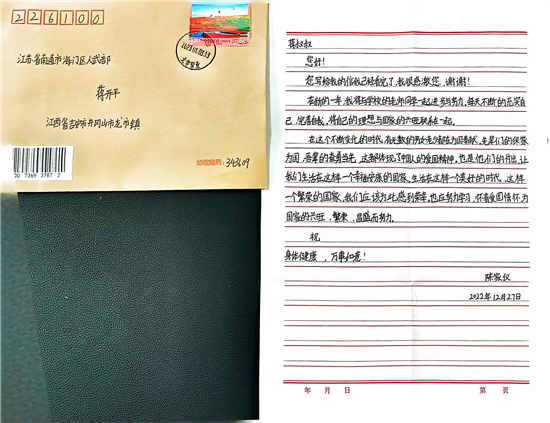 226100
江苏省南通市海门区人武部
蒋开平
江西省吉安市井冈山市龙市镇
邮政编码：343609
蒋叔叔
您好！
您写给我的信我已经看完了，我很感激您，谢谢！
在新的一年，我将与学校的老师同学一起进步与努力，每天不断的充实自
己，完善自我，将自己的理想与国家的兴旺联系在一起。
在这个不断变化的时代，有无数的男女无为
为国，吾辈的奋勇当先，这都体现了中国人的爱国精神，也是他们的付出，让
我们生活在这样一个幸福安康的国家。生活在这样一个美好的时代，这样
一个繁荣的国家，我们应该为此感到荣幸，也应努力学习，怀着爱国情怀为
国家的兴旺，繁荣，昌盛而努力。
祝
身体健康，万事如意！
陈
2022年12月27日
年 月 日
第 页